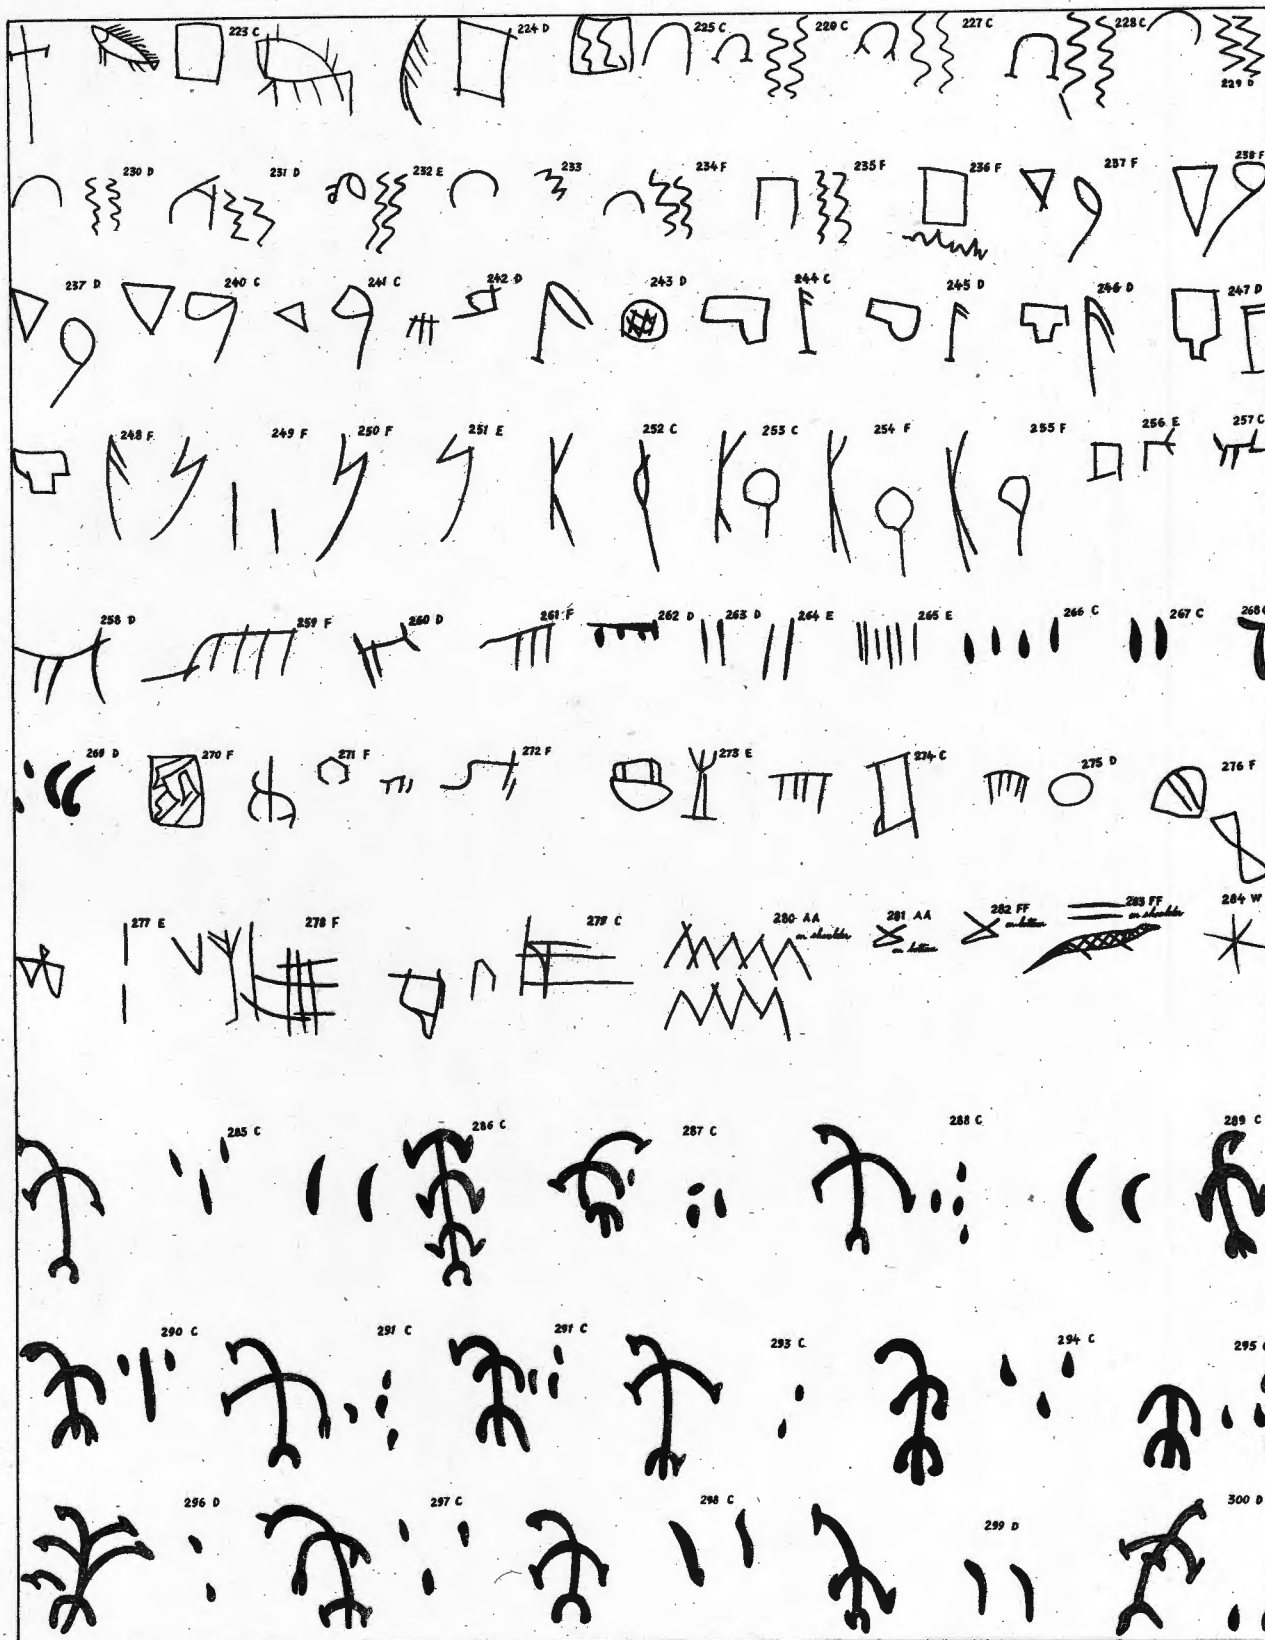 223 C 224 D 225 C 226 C 227 C 228 C
229 D
230 D 231 D 232 E 233 234 F 235 F 236 F 237 F 238 F
237 D 240 C 241 C 242 D 243 D 244 C 245 D 246 D 247 D
248 F 249 F 250 F 251 E 252 C 253 C 254 F 255 F 256 E 257 C
258 D 259 F 260 D 261 F 262 D 263 D 264 E 265 E 266 C 267 C 268 C
269 D 270 F 271 F 272 F 273 E 274 C 275 D 276 F
277 E 278 F 279 C 280 AA 281 AA 282 FF 283 FF 284 W
on shoulder on bottom on bottom on shoulder
285 C 286 C 287 C 288 C 289 C
290 C 291 C 291 C 293 C 294 C 295
296 D 297 C 298 C 299 D 300 D